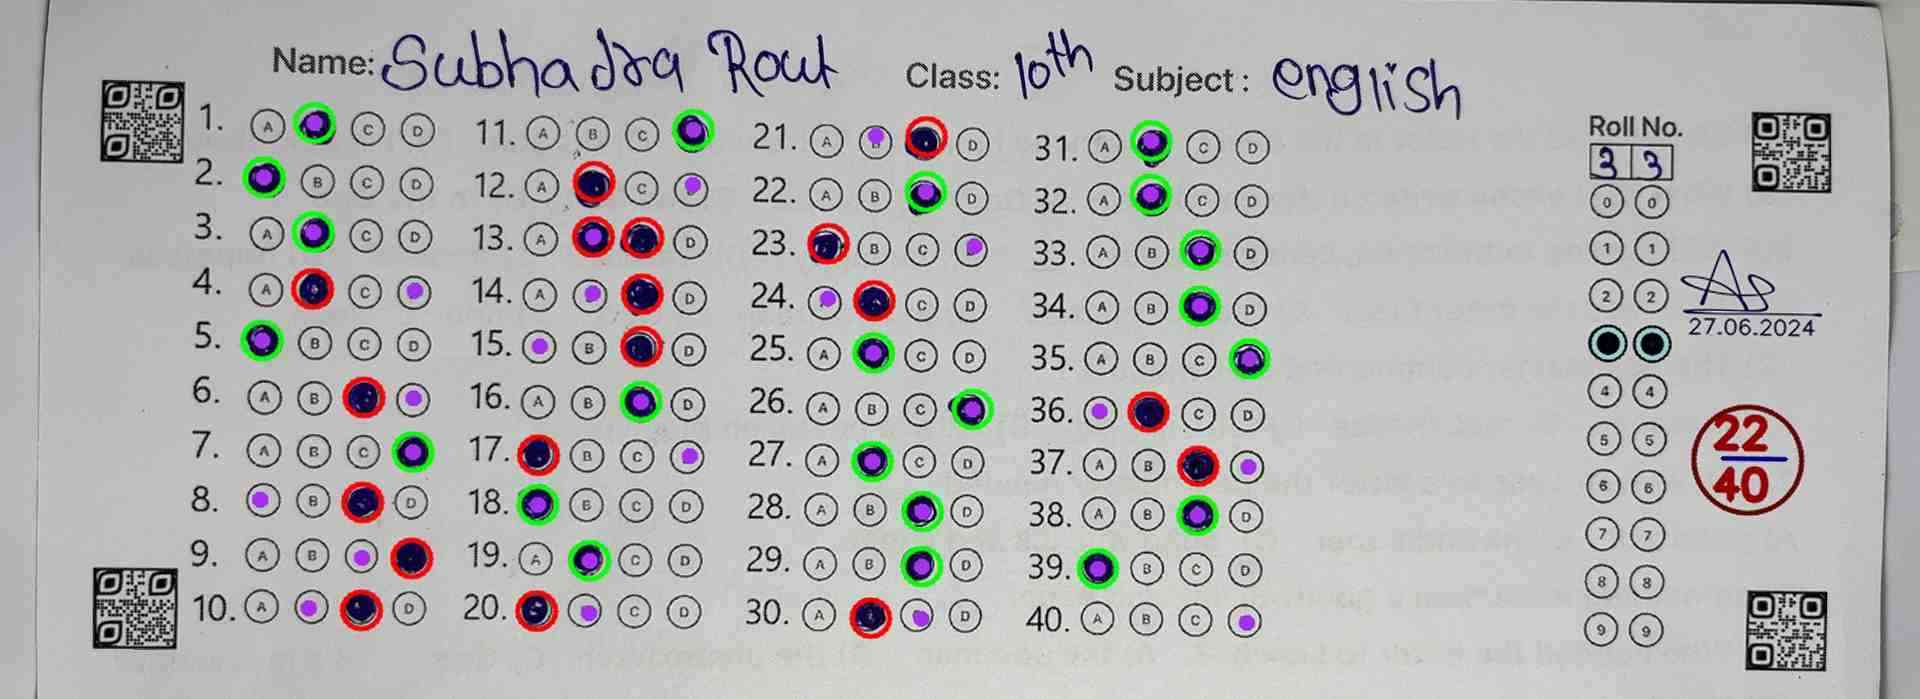 Name: Subhadra Rout Class: 10th Subject: english
1. A C D
2. B C D
3. A C D
4. A C
5. B C D
6. A B
7. A B C
8. B D
9. A B
10. A D
11. A B C
12. A C
13. A D
14. A D
15. B D
16. A B D
17. B C
18. B C D
19. A C D
20. C D
21. A D
22. A B D
23. B C
24. C D
25. A C D
26. A B C
27. A C D
28. A B D
29. A B D
30. A D
31. A C D
32. A C D
33. A B D
34. A B D
35. A B C
36. C D
37. A B
38. A B D
39. B C D
40. A B C
Roll No.
3 3
0 0
1 1
2 2
4 4
5 5
6 6
7 7
8 8
9 9
27.06.2024
22
40